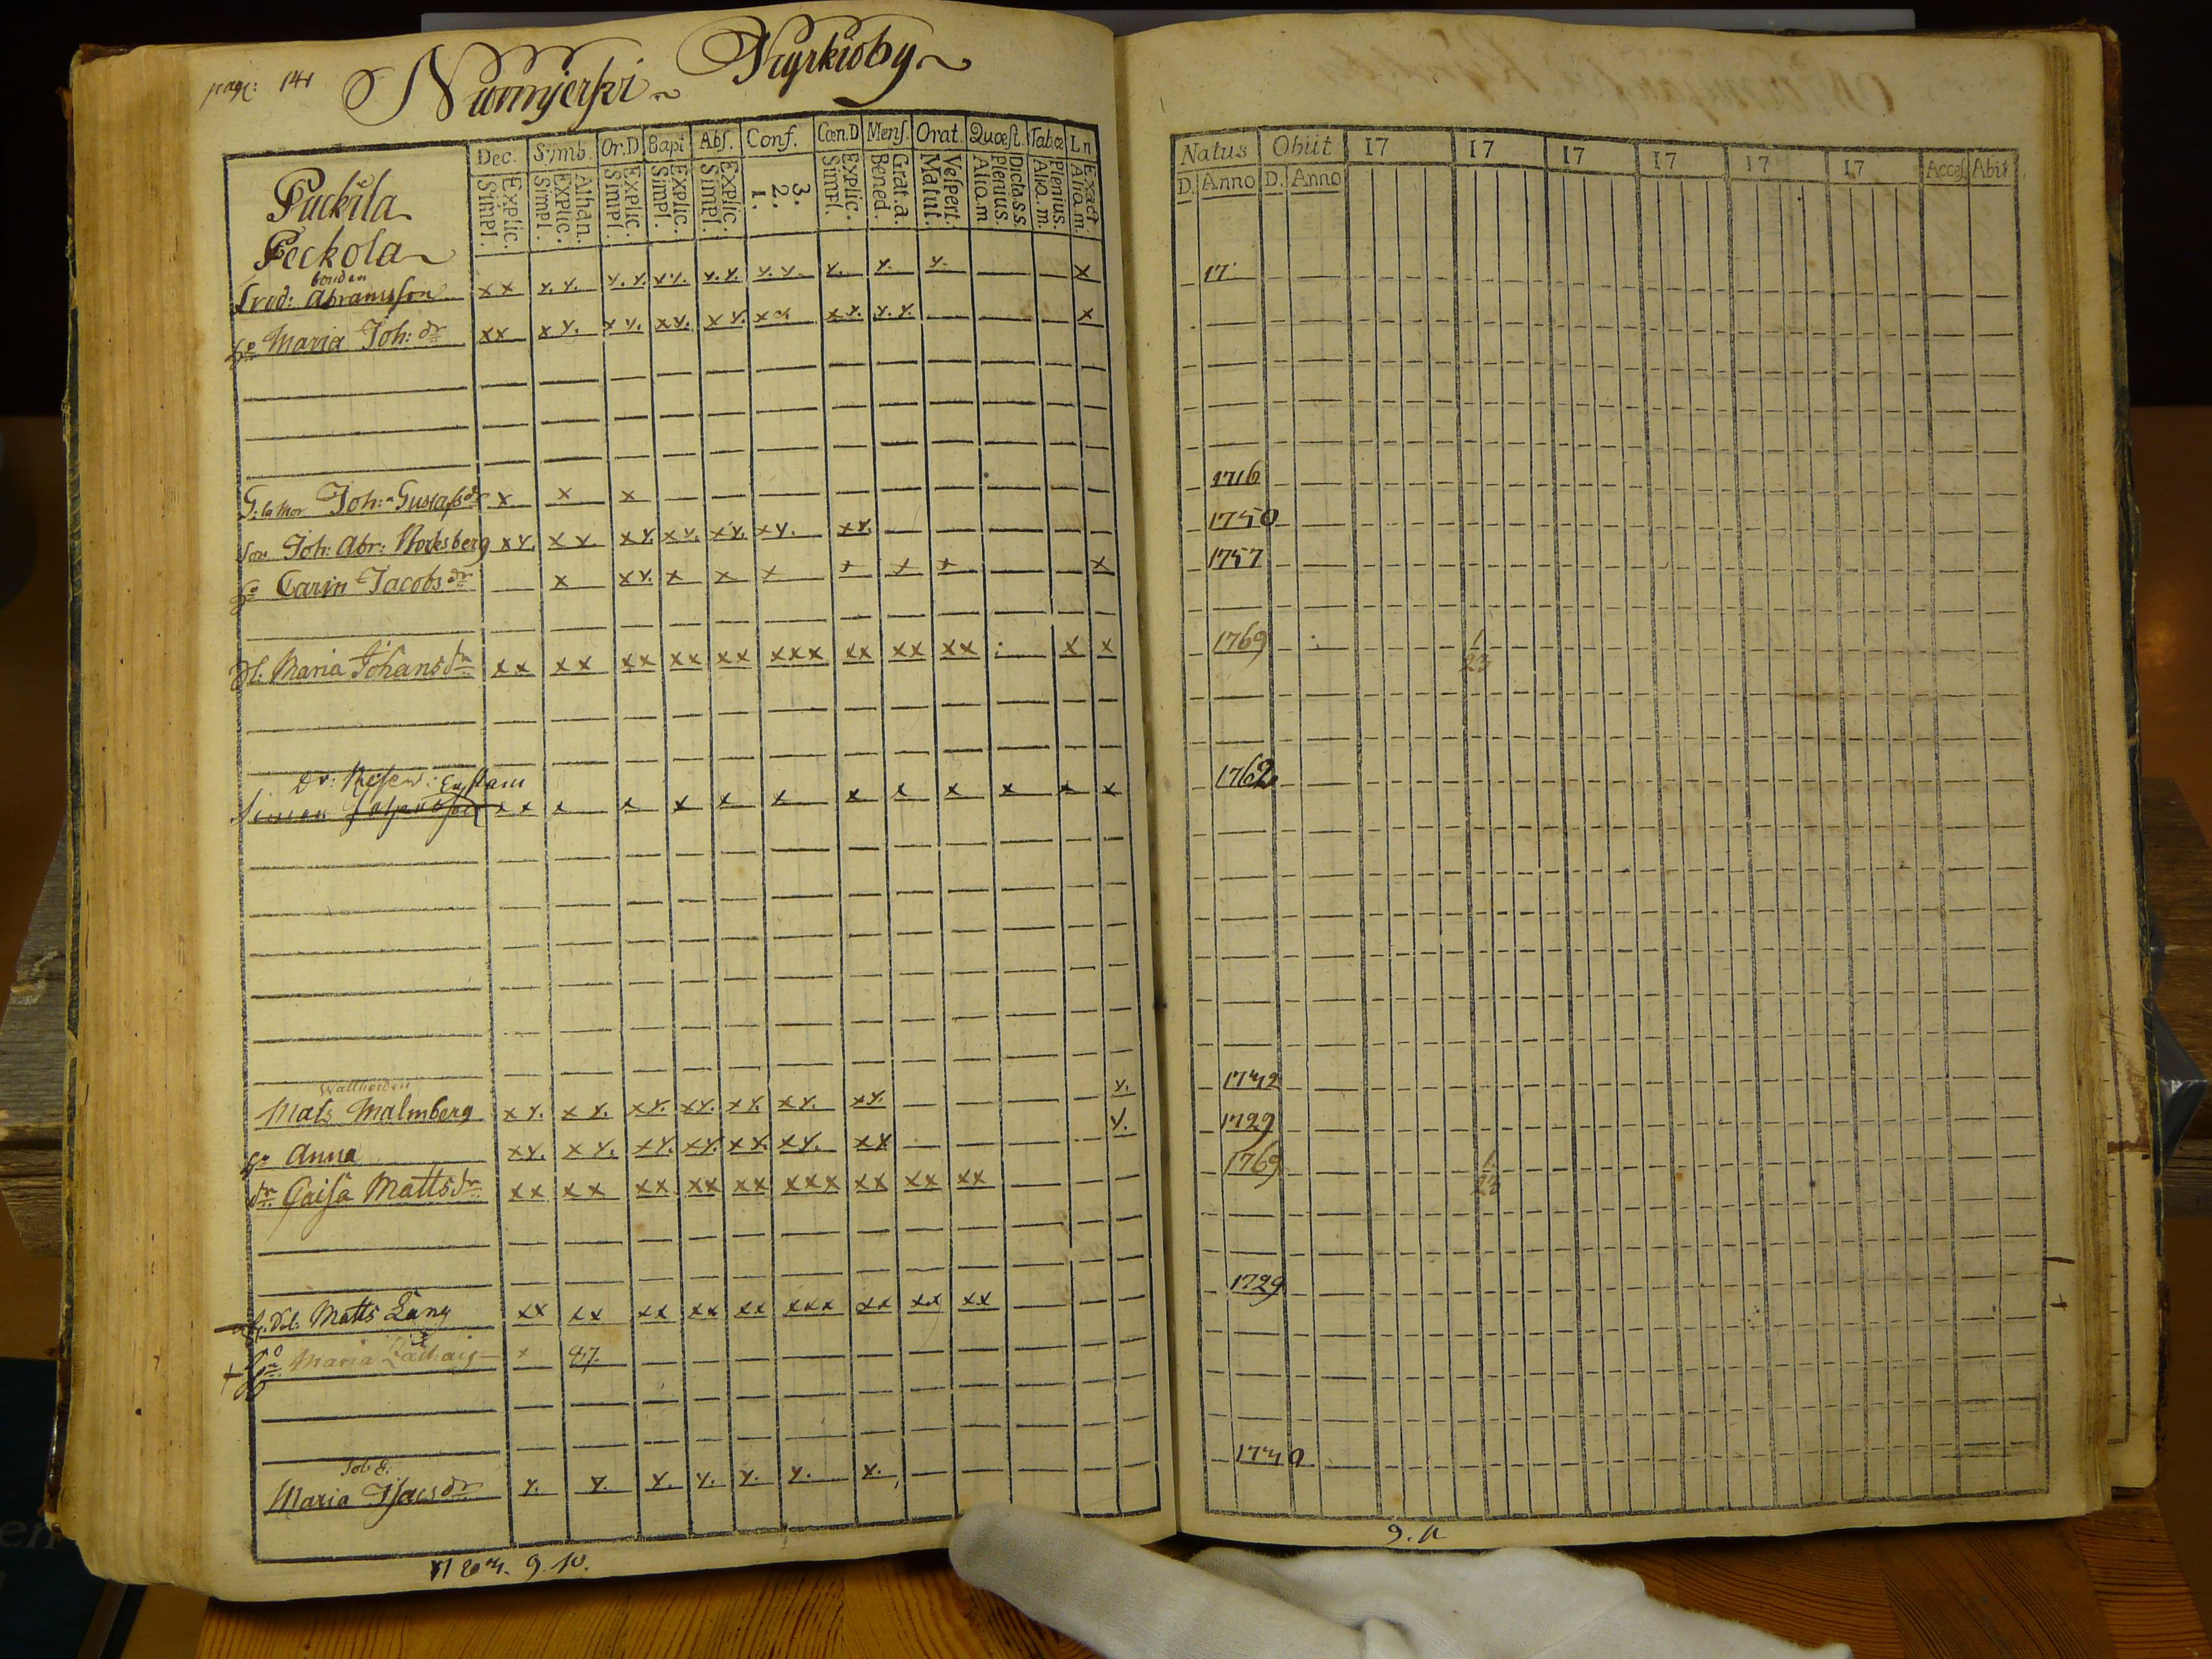 pag: 141
Nurmjerfvi Kyrkioby
Dec. Symb. Or.D Bapt Abs. Conf. Cœn.D Mens. Orat. Quæst. Tabœ Ln
Explic. Simpl. Athan. Explic. Simpl. Explic. Simpl. Explic. Simpl. Explic. Simpl. 3. 2. 1. Explic. Simpl. Grat. a. Bened. Vespert. Matut. Dicta. s.s. Plenius. Aliq. m Plenius. Aliq. m. Exact Aliq. m.
Puckila
Peckola
bonden
Fred: Abramsson x x y. y. y. y. y y. y. y. y. y. y. y. y. x
ho Maria Joh: dr x x x y. x y. x y. x y. x y. y. y. x
G: la Mor Joh: Gustafs dr x x x
Son Joh: Abr: x y. x y x y. x y. x y. x y. x y.
ho Carin Jacobs dr x x y. x x x x x x x
Dr. Maria Johans dr x x x x x x x x x x x x x x x x x x x x x
Simon x x x x x x x x x x x x x
Wallherden
Mats Malmberg x y. x y. x y. x y. x y. x y. x y. y.
ho Anna x y. x y. x y. x y. x x. x y. x x y.
dr. Caisa Matts dr x x x x x x x x x x x x x x x x x x x
Matts Lång x x x x x x x x x x x x x x x x x x x
+ ho Maria x 87.
Maria Isacs dr y. y. y. y. y. y. y.
Natus Obiit 17 17 17 17 17 17 Acces. Abit.
D. Anno D. Anno
17
1716
1750
1757
1769 1/23
1762
1742
1729
1769 1/23
1729
1740